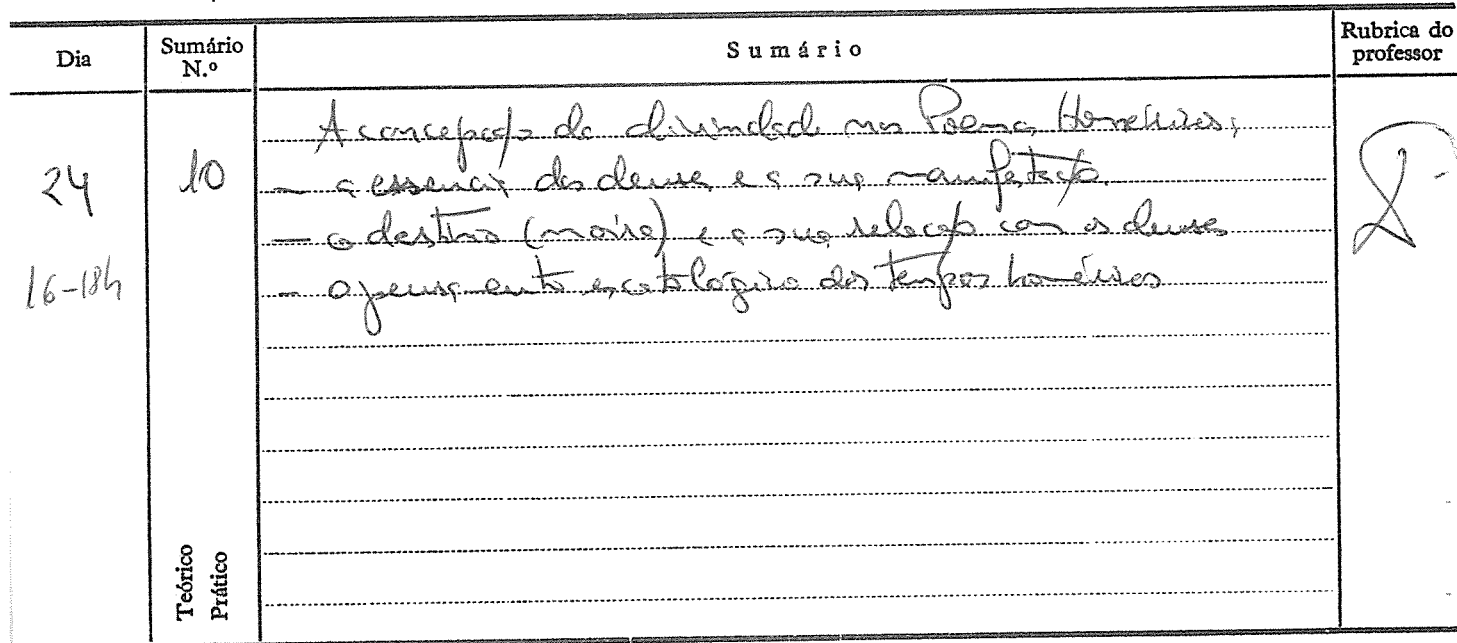 Dia
Sumário N.º
Sumário
Rubrica do professor
24
16-18h
10
A concepção da divindade nos Poemas Homéricos;
- a essência dos deuses e a sua manifestação.
- o destino (moira) e a sua relação com os deuses
- o pensamento escatológico dos tempos homéricos
Teórico
Prático